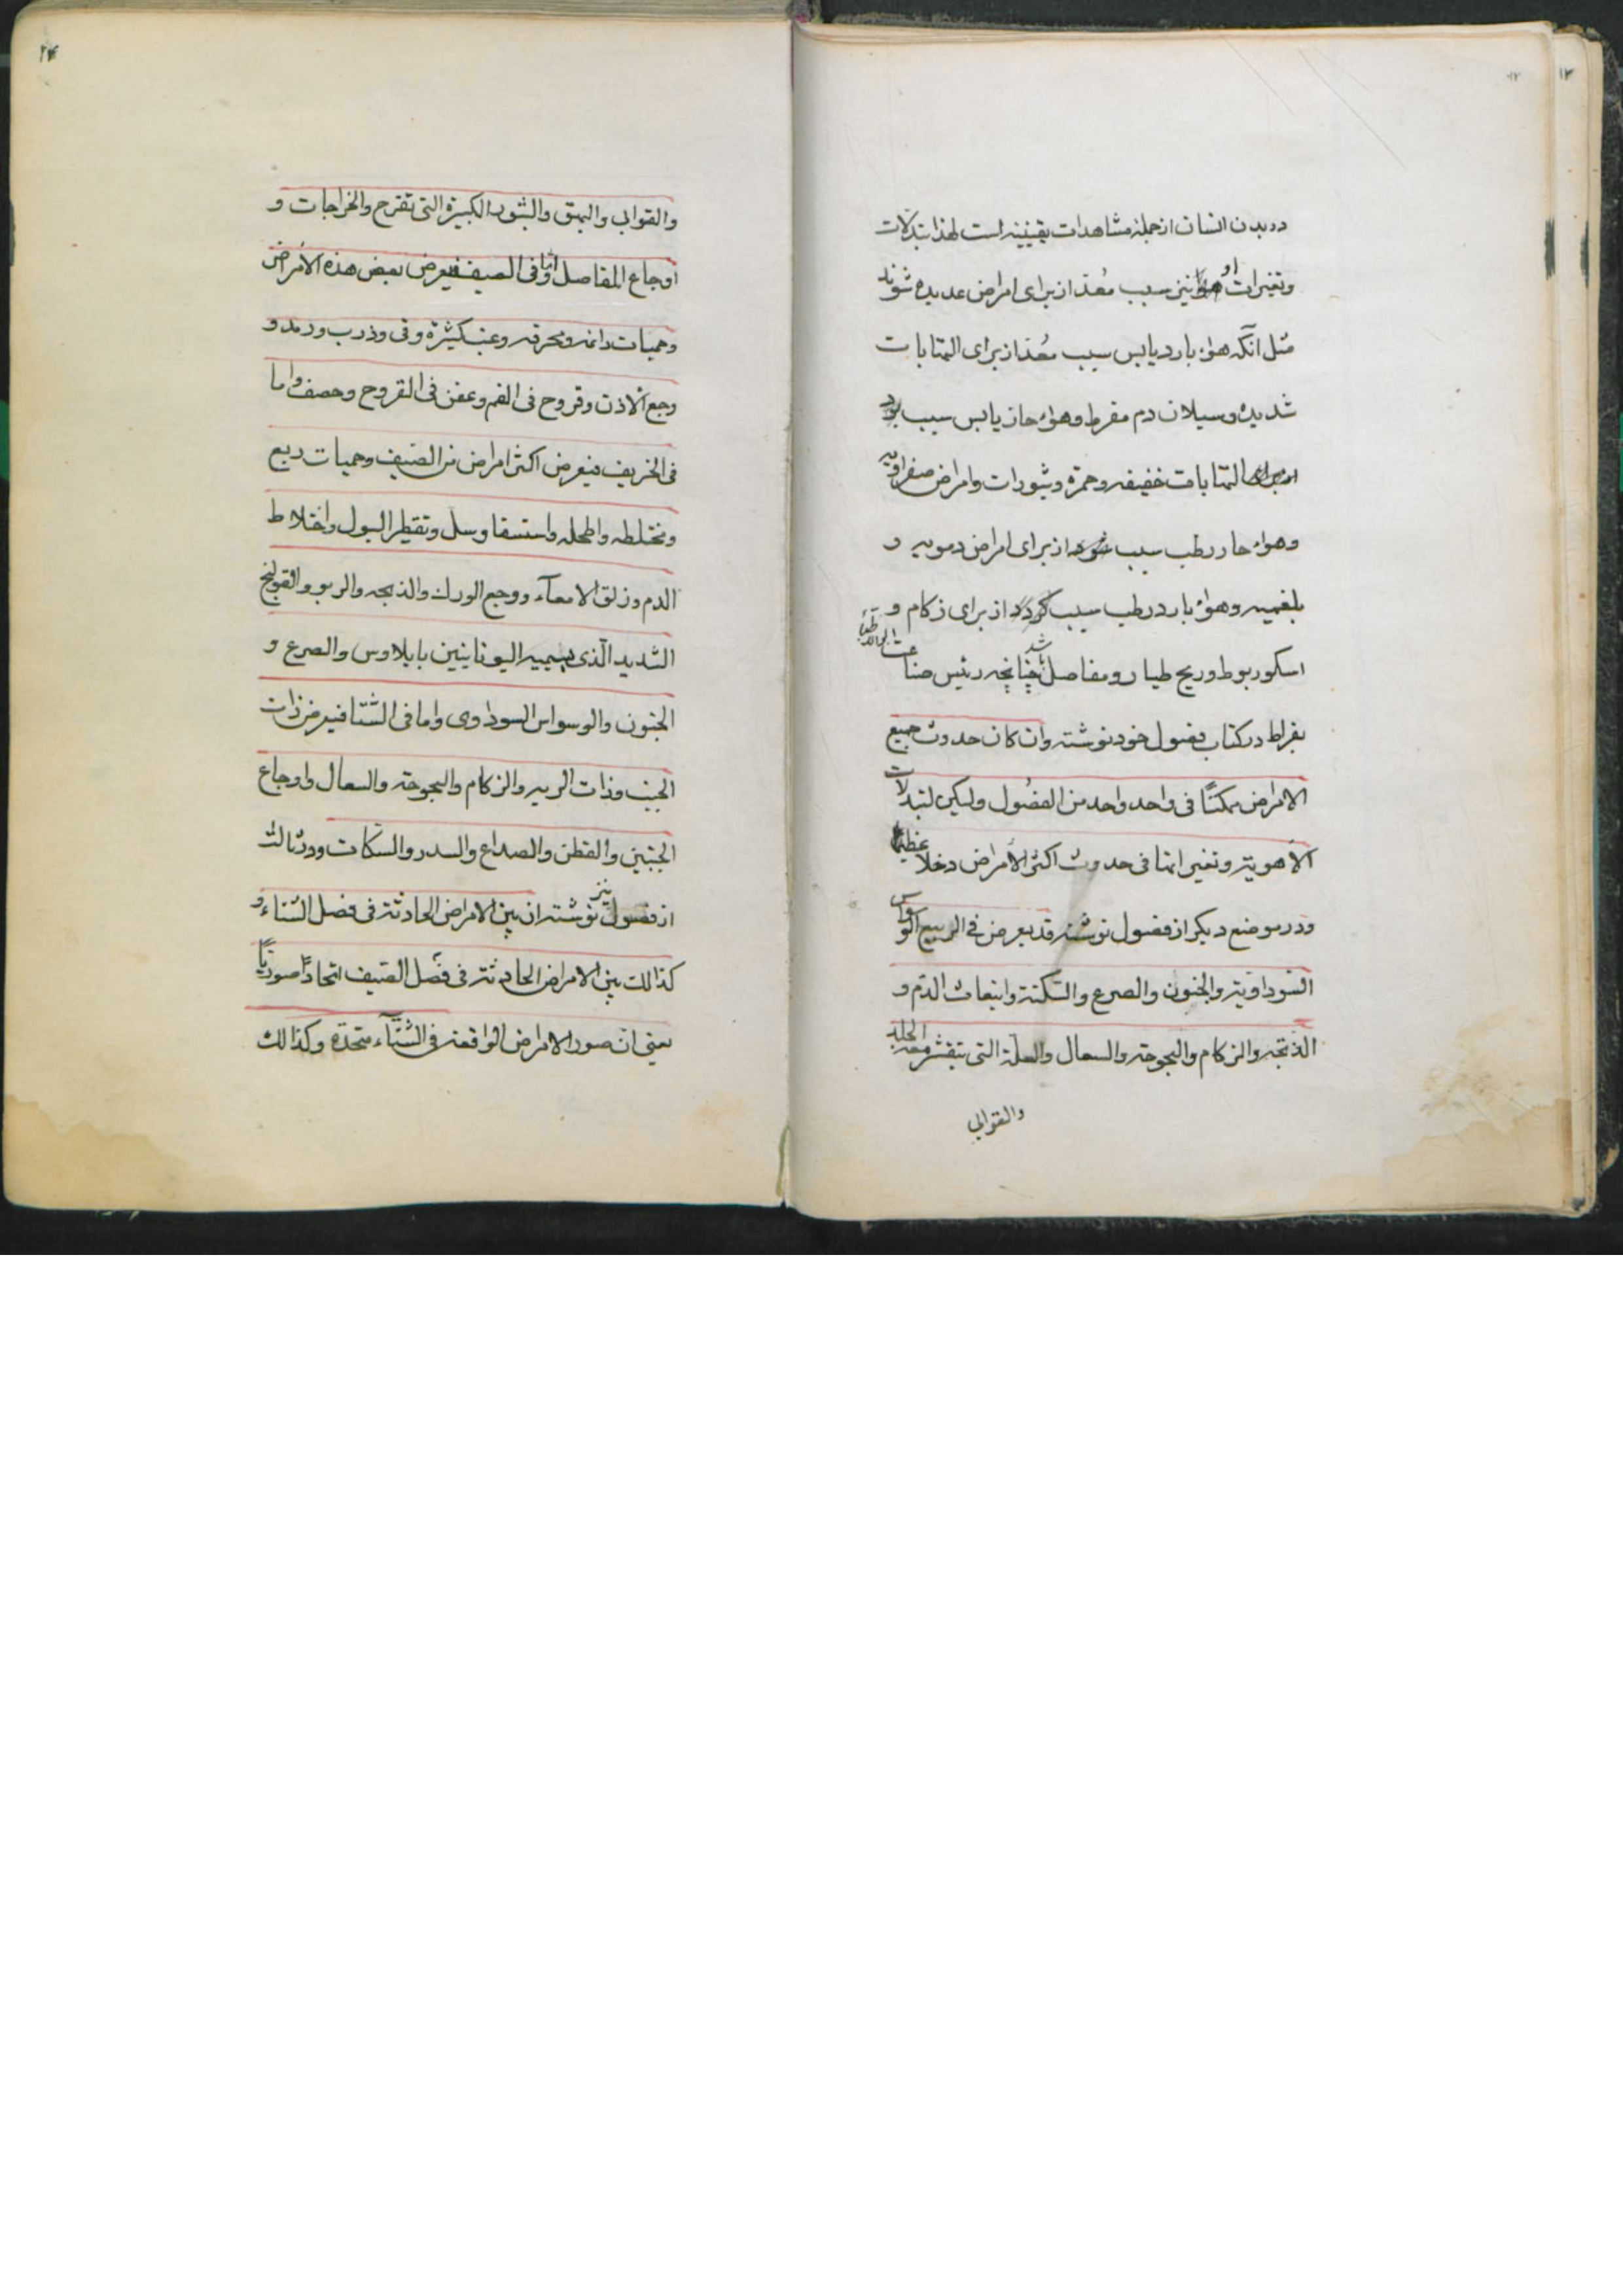 ۱۳
۱۲
در بدن انسان از جمله مشاهدات یقینیه است لهذا تبدلات
وتغیرات او نیز سبب مُعدّ از برای امراض عدیده شوند
مثل آنکه هواء بارد یابس سبب مُعدّ از برای التهابات
شدیده وسیلان دم مفرط وهواء حار یابس سبب بود
از برای التهابات خفیفه وحمره وبثورات وامراض صفراویه
وهواء حار رطب سبب شود از برای امراض دمویه و
بلغمیه وهواء بارد رطب سبب گردد از برای زکام و
اسکوربوط وریح طیار ومفاصل باشد چنانچه رئیس صناعت
بقراط در کتاب فصول خود نوشته وان کان حدوث جمیع
الامراض ممکنًا فی واحد واحد من الفصُول ولیکن لتبدلات
الأهویة وتغیراتها فی حدوث اکثر الأمراض دخلاً عظیمًا
ودر موضع دیگر از فصول نوشته قد یعرض فی الربیع الوسواس
السّوداویة والجنون والصرع والسّکتة وانبعاث الدّم و
الذبحه والزکام والبحوحة والسعال والعلّة التی یتقشر معه الجلد
والقوابی
۲۴
والقوابی والبهق والبثور الکبیرة التی تقرح والخراجات و
اوجاع المفاصل واما فی الصیف فیعرض بعض هذه الأمراض
وحمیات دائمه ومحرقه وغب کثیرة وقی وذرب ورمد و
وجع الاذن وقروح فی الفم وعفن فی القروح وحصف واما
فی الخریف فیعرض اکثر امراض من الصیف وحمیات ربع
ومختلطه واطحله واستسقا وسل وتقطیر البول واختلاط
الدم وزلق الامعآء ووجع الورك والذبحه والربو والقولنج
الشدید الّذی یسمیه الیونانیین بایلاوس والصرع و
الجنون والوسواس السوداوی واما فی الشتا فیعرض ذات
الجنب وذات الریه والزکام والبحوحة والسعال واوجاع
الجنبین والقطن والصداع والسدر والسکات ودر ثالث
از فصول نیز نوشته ان بین الامراض الحادثة فی فصل الشتاء و
کذالك بین الامراض الحادثة فی فصل الصّیف اتحادًا صوریًا
یعنی ان صور الامراض الواقعة فی الشّتآء متحدّة وکذالك